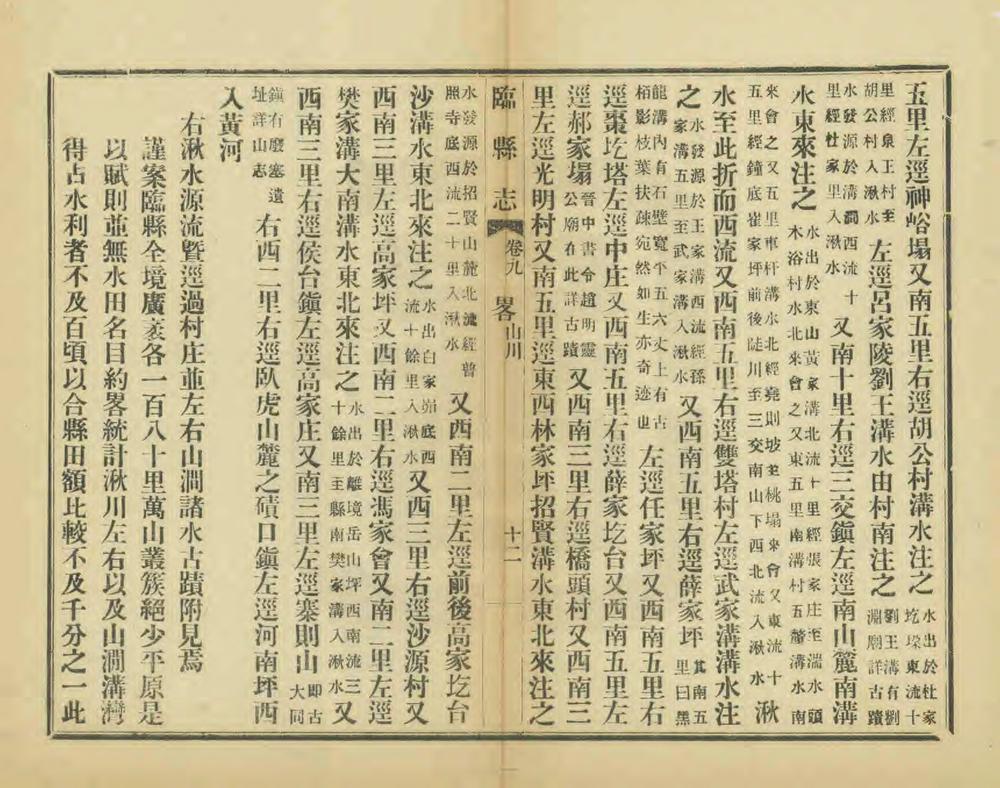 五里左逕神峪塌又南五里右逕胡公村溝水注之水出於杜家圪垛東流十
里經泉王村至胡公村入湫水左逕呂家陵劉王溝水由村南注之劉王溝有劉淵廟詳古蹟
水發源於溝澗西流十里經杜家里入湫水又南十里右逕三交鎮左逕南山麓南溝
水東來注之水出於東山黃家溝北流十里經張家庄至湍水頭木浴村水北來會之又東五里南溝村五溝水南
來會之又五里車杆溝水北經堯則坡至桃塌來會又東流十五里經鐘底崔家坪前後陡川至三交南山下西北流入湫水湫
水至此折而西流又西南五里右逕雙塔村左逕武家溝溝水注
之水發源於王家溝西流經孫家溝五里至武家溝入湫水又西南五里右逕薛家坪其南五里曰黑
龍溝內有石壁寬平五六丈上有古栢影枝葉扶疎宛然如生亦奇迹也左逕任家坪又西南五里右
逕棗圪塔左逕中庄又西南五里右逕薛家圪台又西南五里左
逕郝家塌晉中書令趙明靈公廟在此詳古蹟又西南三里右逕橋頭村又西南三
里左逕光明村又南五里逕東西林家坪招賢溝水東北來注之
臨縣志 卷九 山川畧 十二
水發源於招賢山麓北流經普照寺底西流二十里入湫水又西南二里左逕前後高家圪台
沙溝水東北來注之水出白家峁底西流十餘里入湫水又西三里右逕沙源村又
西南三里左逕高家坪又西南二里右逕馮家會又南二里左逕
樊家溝大南溝水東北來注之水出於離境岳山坪西南流三十餘里至縣南樊家溝入湫水又
西南三里右逕侯台鎮左逕高家庄又南三里左逕寨則山即古大同
鎮有廢塞遺址詳山志右西二里右逕臥虎山麓之磧口鎮左逕河南坪西
入黃河
右湫水源流暨逕過村庄並左右山澗諸水古蹟附見焉
謹案臨縣全境廣袤各一百八十里萬山叢簇絕少平原是
以賦則並無水田名目約畧統計湫川左右以及山澗溝灣
得占水利者不及百頃以合縣田額比較不及千分之一此